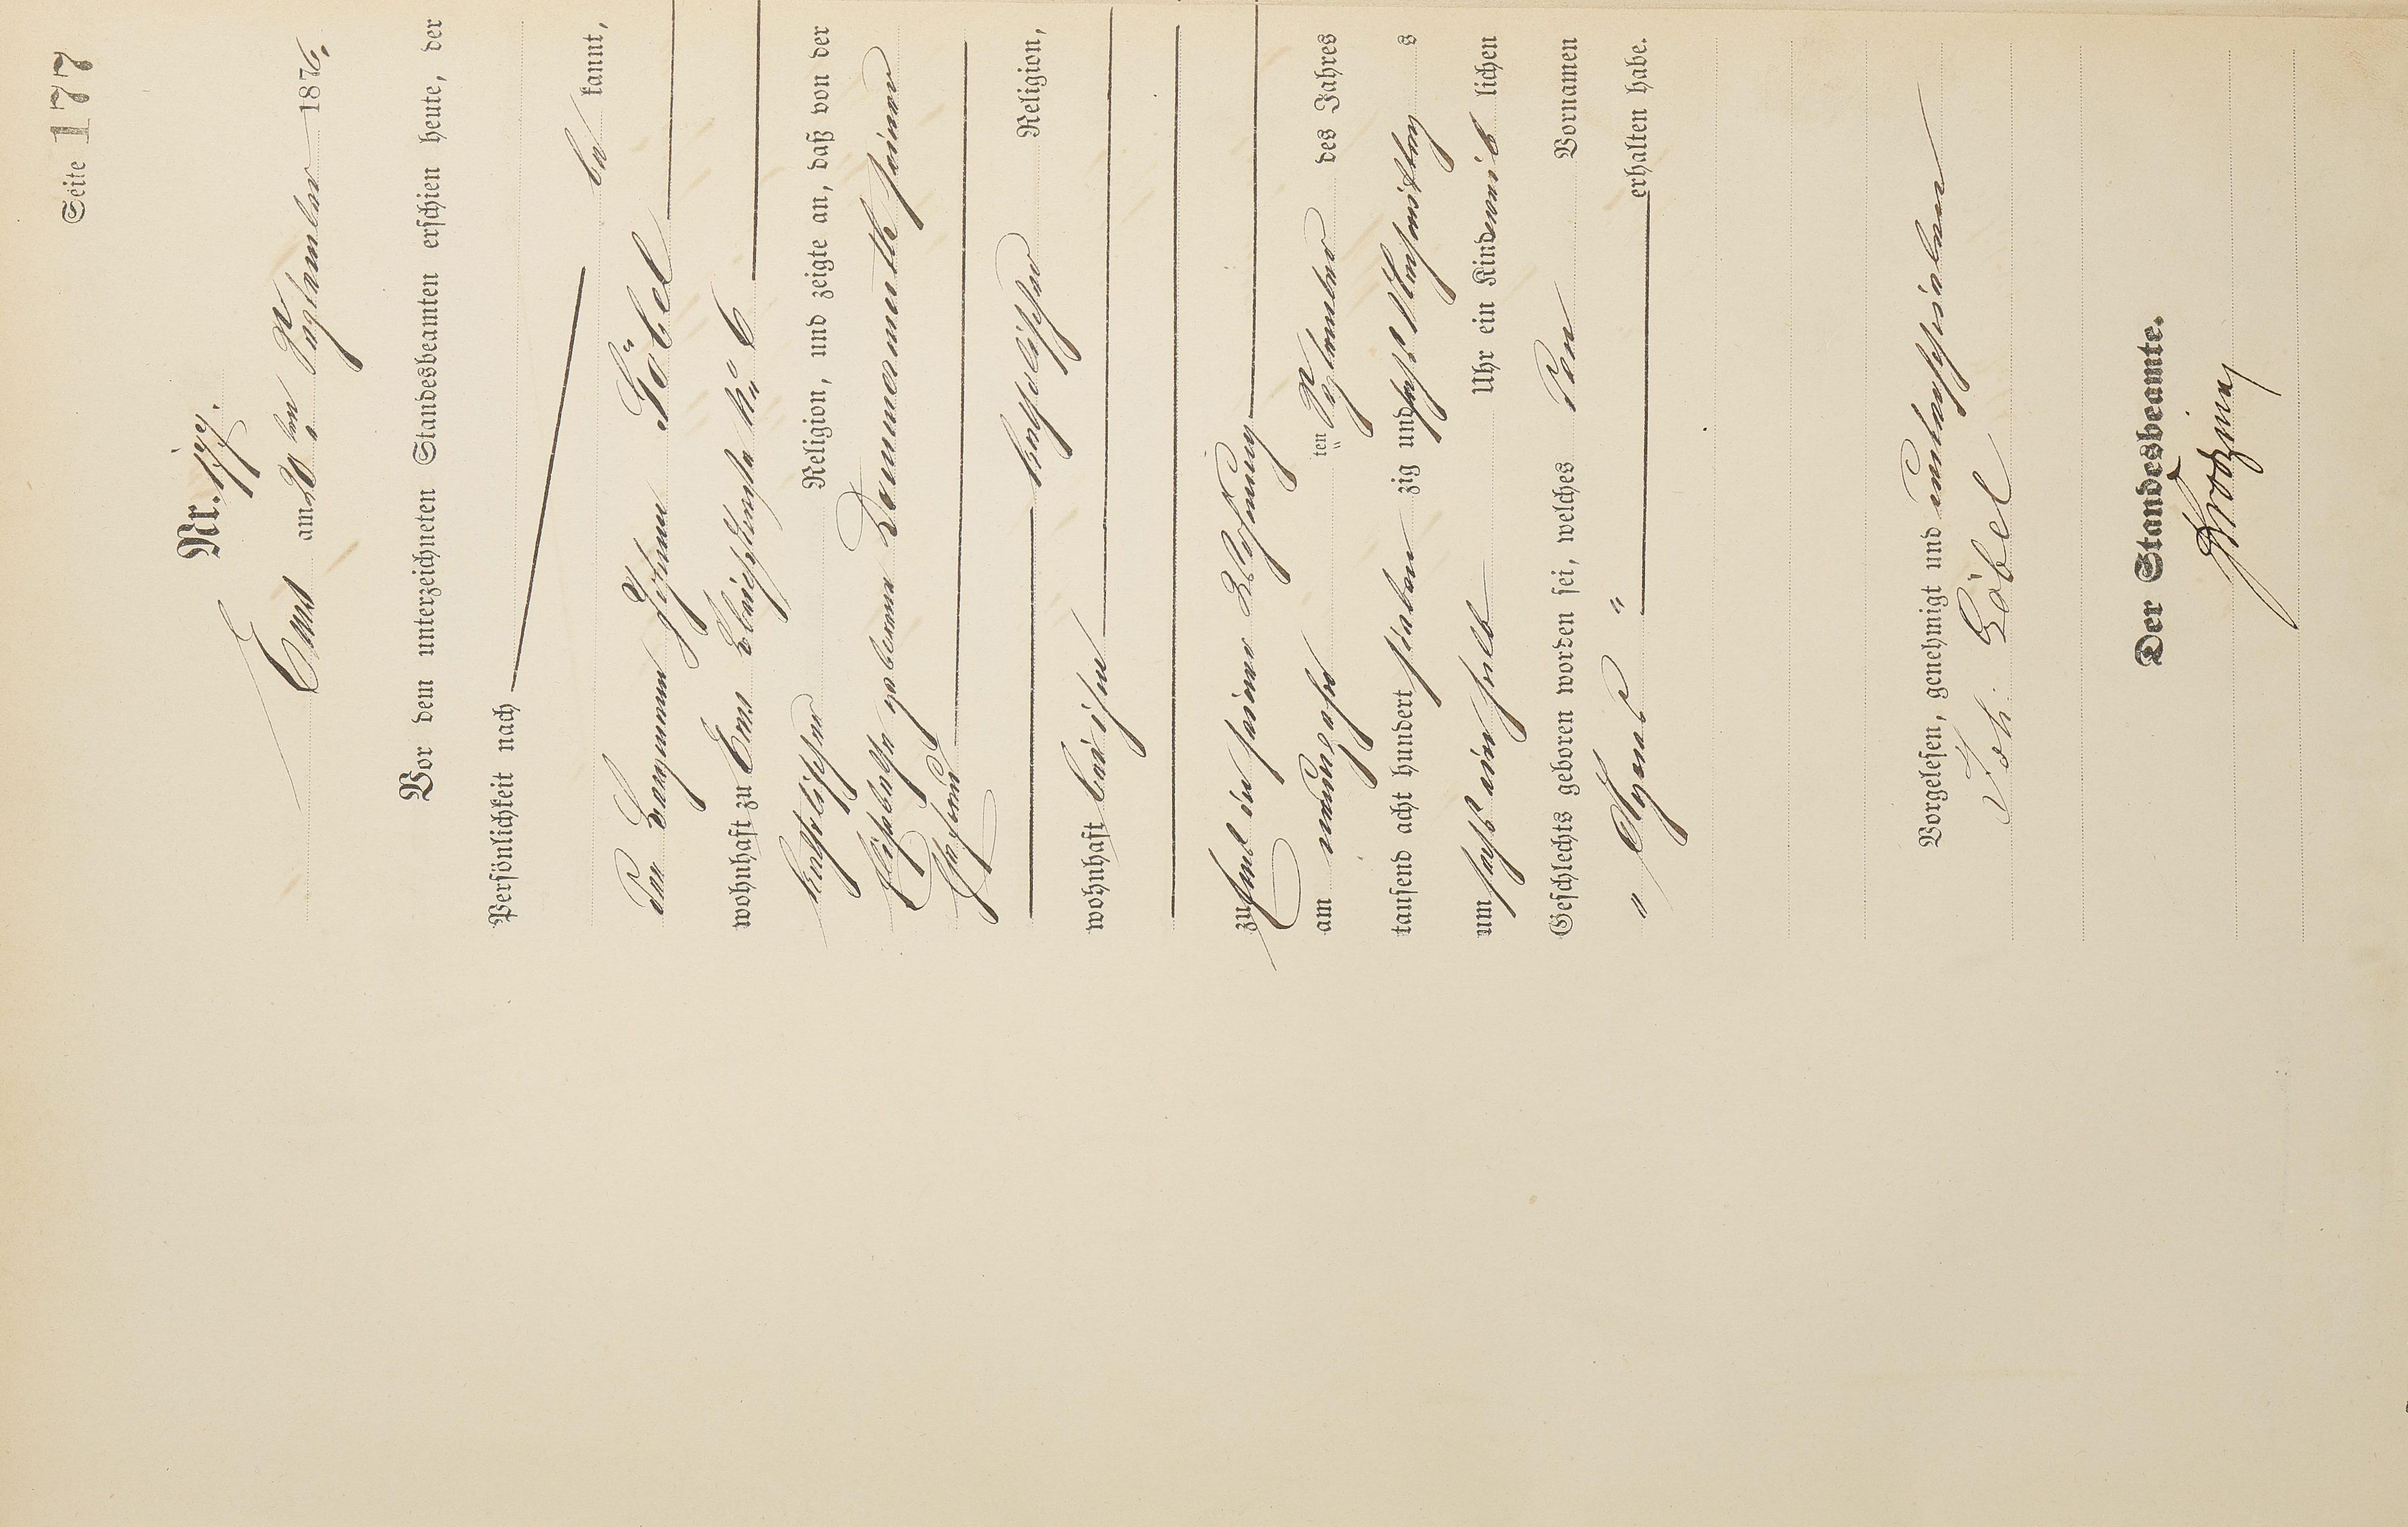 Seite 177
Nr. 177.
Ems am 20ten September 1876.
Vor dem unterzeichneten Standesbeamten erschien heute, der
Persönlichkeit nach
bekannt,
der Bergmann Johann Göbel
wohnhaft zu Ems
katholischer Religion, und zeigte an, daß von der
Elisabetha geborene seiner
Ehefrau
katholischer Religion,
wohnhaft bei ihm
zu Ems in seiner Wohnung
am ten September des Jahres
tausend acht hundert siebenzig und sechs Nachmittags
um sechs ein halb Uhr ein Kind weiblichen
Geschlechts geboren worden sei, welches den Vornamen
" Agnes " erhalten habe.
Vorgelesen, genehmigt und unterschrieben
Joh. Göbel
Der Standesbeamte.